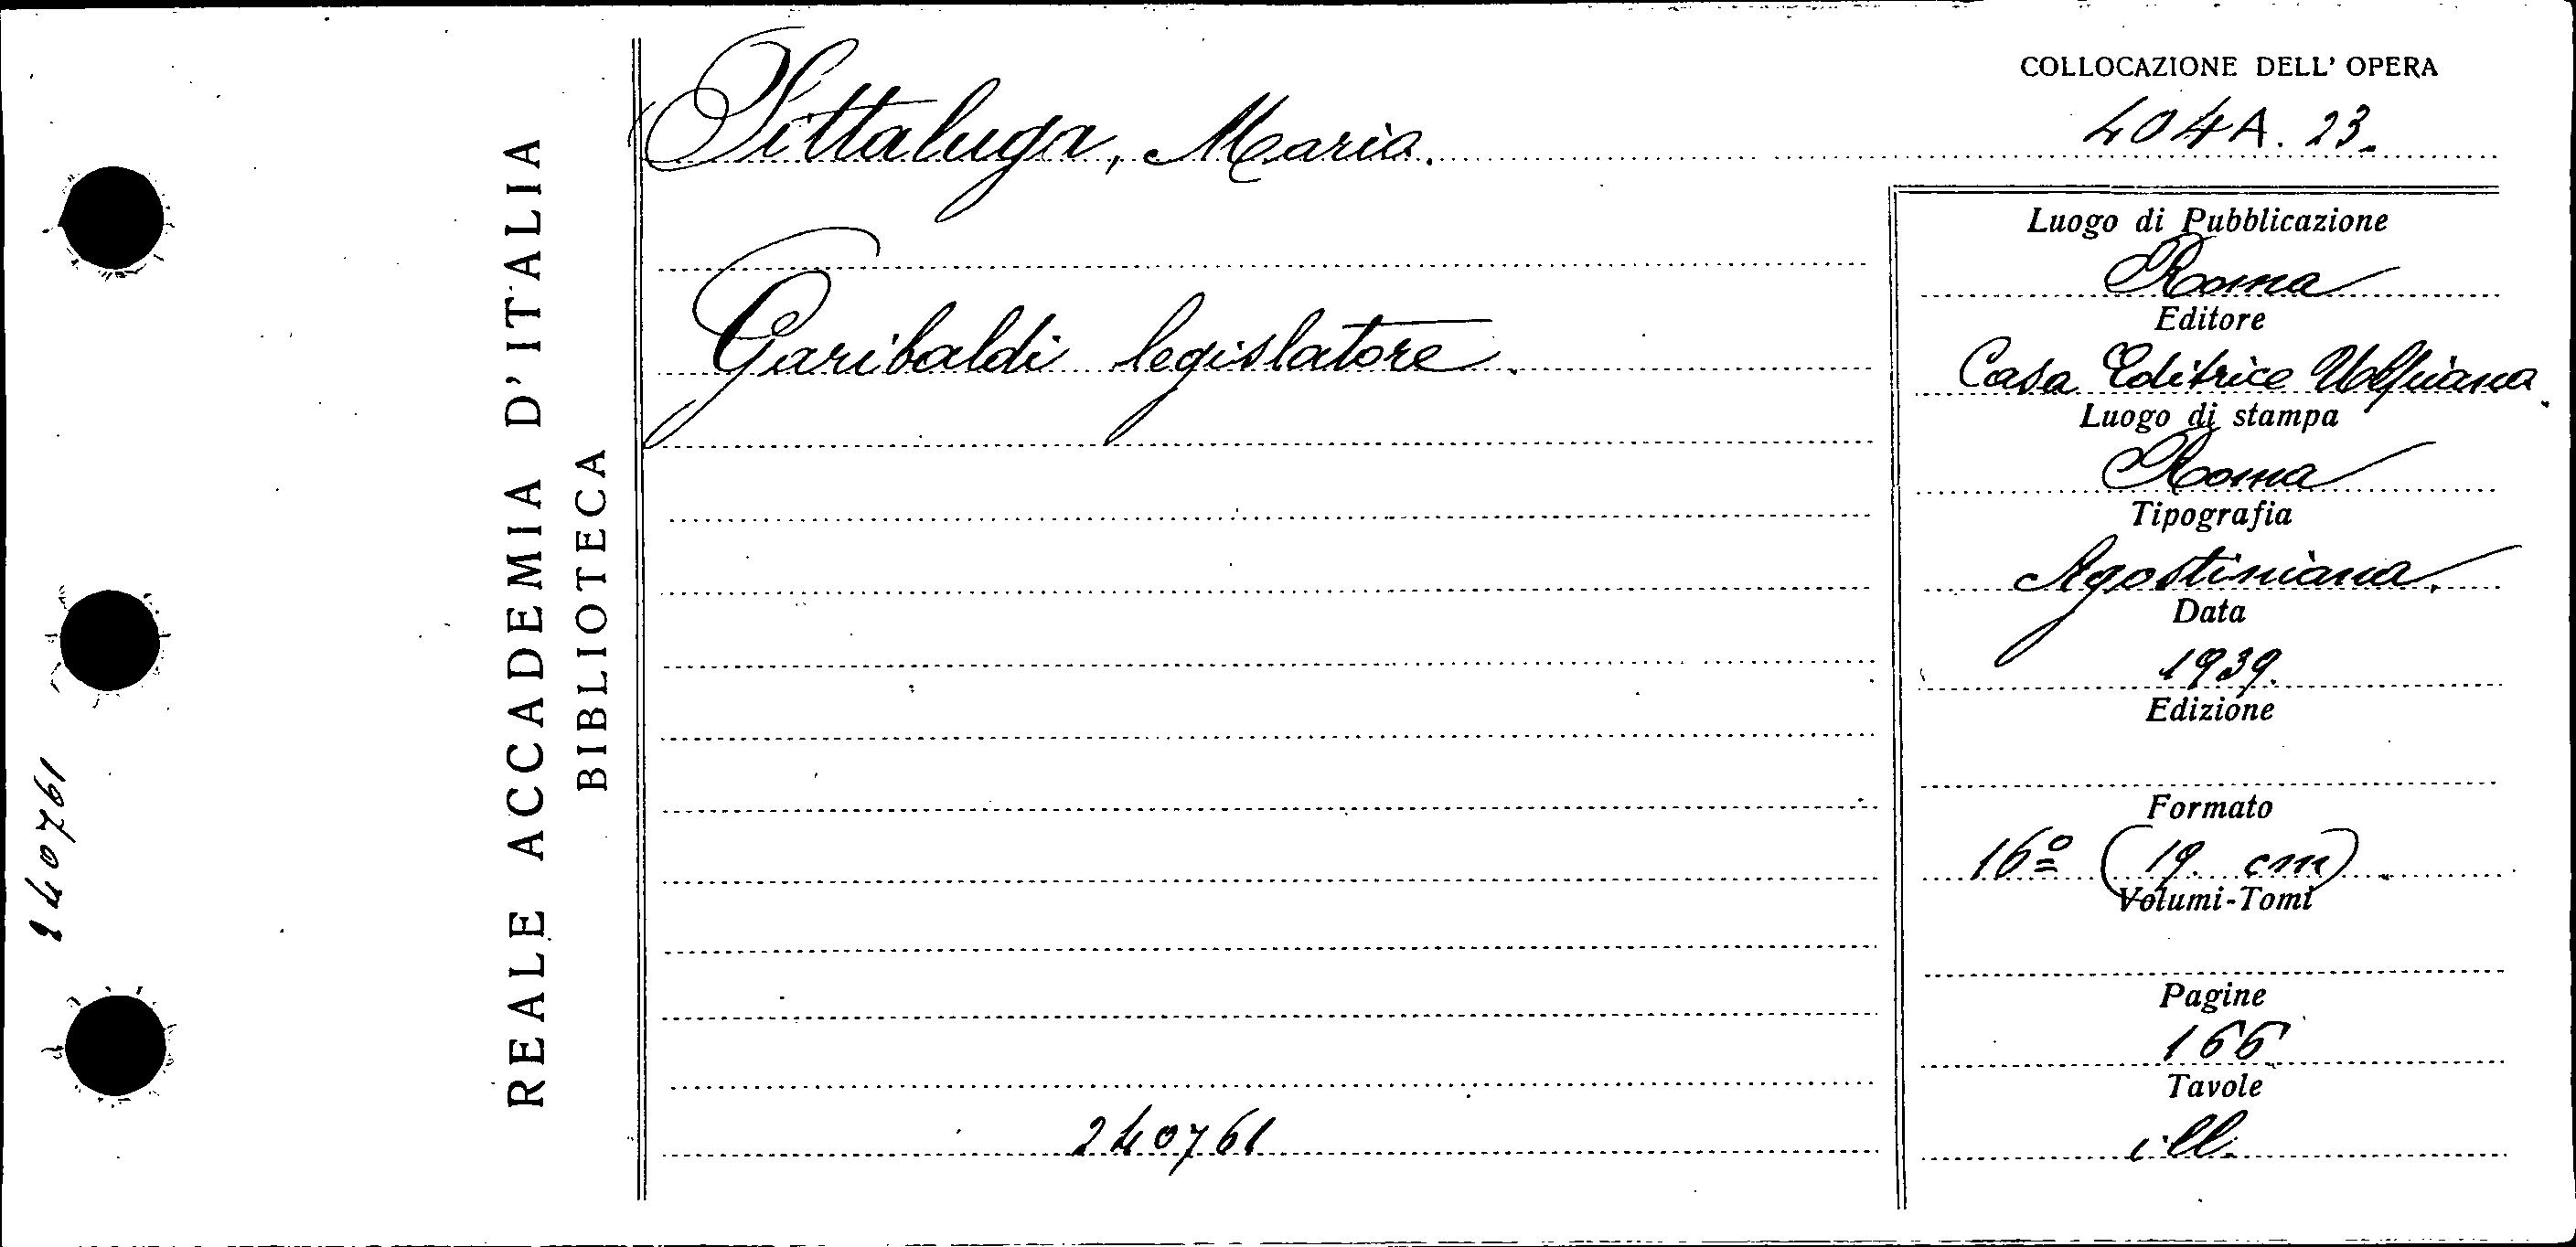 240761
REALE ACCADEMIA D'ITALIA
BIBLIOTECA
Pittaluga, Maria.
Garibaldi legislatore.
240761
COLLOCAZIONE DELL' OPERA
404A. 23.
Luogo di Pubblicazione
Roma
Editore
Casa Editrice Ulpiana.
Luogo di stampa
Roma
Tipografia
Agostiniana.
Data
1939.
Edizione
Formato
16º (19. cm).
Volumi-Tomi
Pagine
166
Tavole
ill.